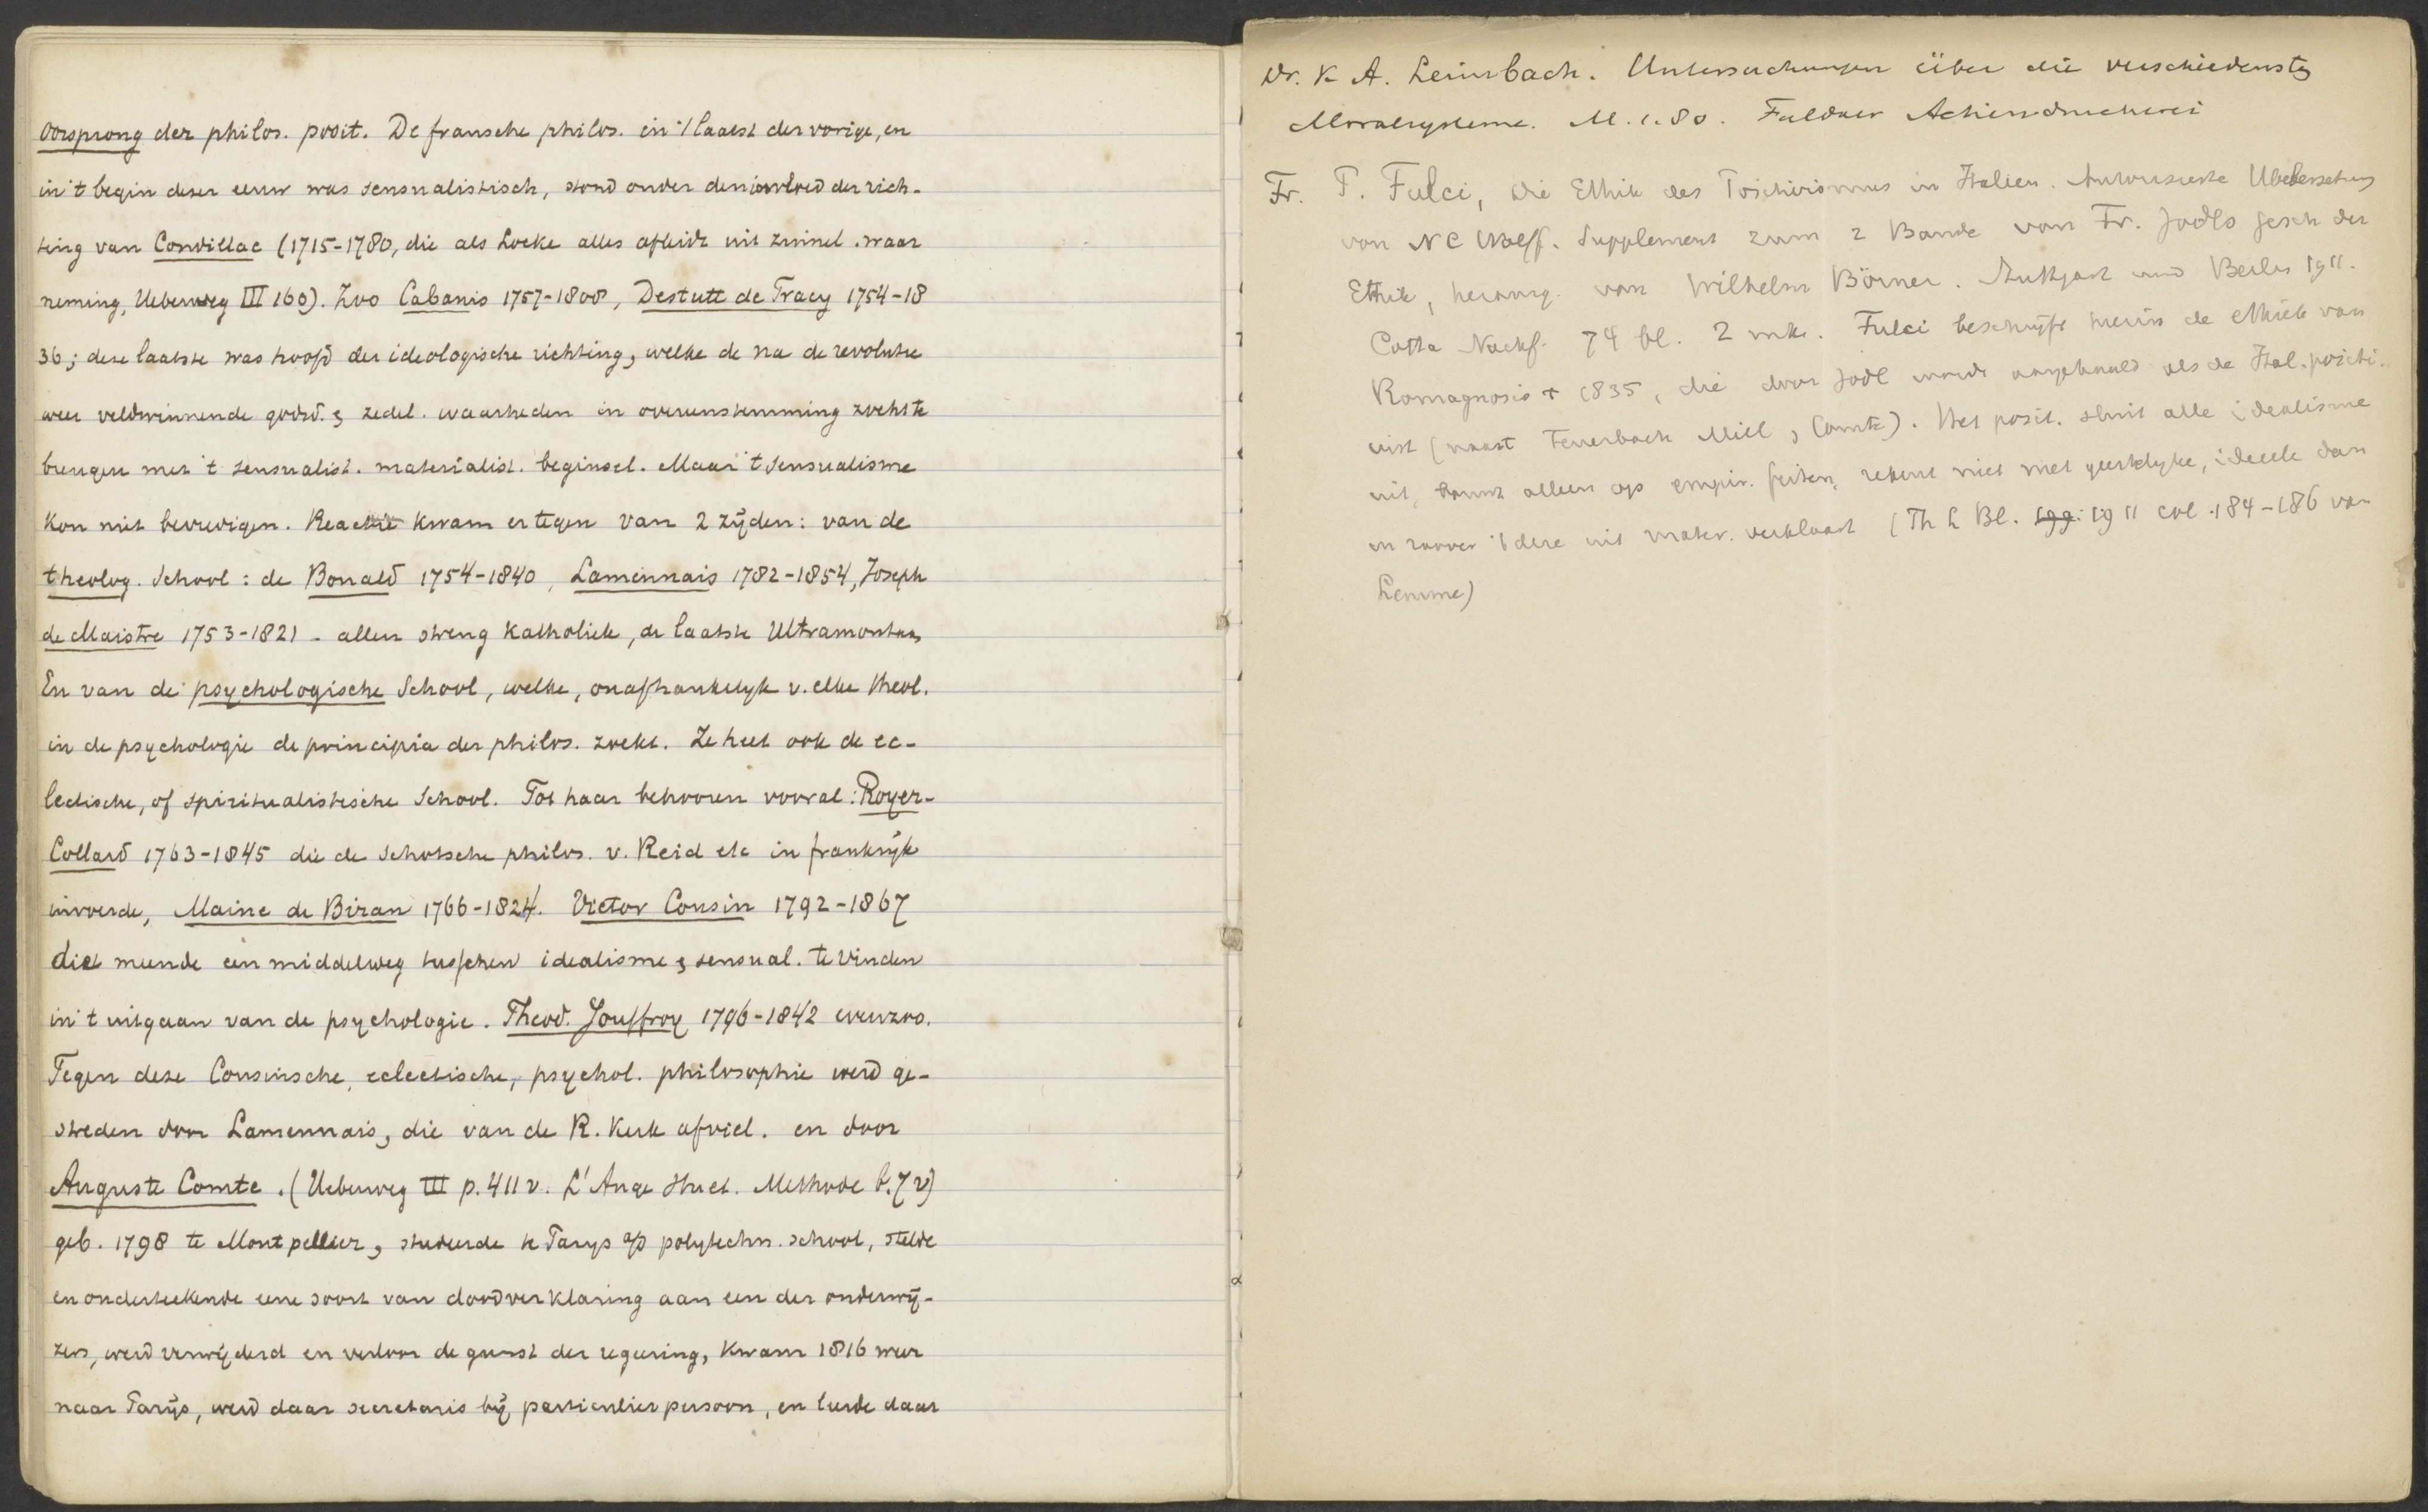 Oorsprong der philos. posit. De fransche philos. in 't laatst der vorige, en
in 't begin dezer eeuw was sensualistisch, stond onder den invloed der rich-
ting van Condillac (1715-1780, die als Locke alles afleidt uit zinnel. waar
neming, Ueberweg III 160). Zoo Cabanis 1757-1808, Destutt de Tracy 1754-18
36; deze laatste was hoofd der ideologische richting, welke de na de revolutie
weer veldwinnende godsd. & zedel. waarheden in overeenstemming zocht te
brengen met 't sensualist. materialist. beginsel. Maar 't sensualisme
kon niet bevredigen. Reactie kwam er tegen van 2 zijden: van de
theolog. School: de Bonald 1754-1840, Lamennais 1782-1854, Joseph
de Maistre 1753-1821 - allen streng Katholiek, de laatste Ultramontaan,
En van de psychologische School, welke, onafhankelyk v. elke theol.
in de psychologie de principia der philos. zoekt. Ze heet ook de ec-
lectische, of spiritualistische School. Tot haar behooren vooral: Royer-
Collard 1763-1845 die de Schotsche philos. v. Reid etc in frankrijk
invoerde, Maine de Biran 1766-1824. Victor Cousin 1792-1867
die meende een middelweg tusschen idealisme & sensual. te vinden
in 't uitgaan van de psychologie. Theod. Jouffroy 1796-1842 evenzoo.
Tegen deze Cousinsche, eclectische, psychol. philosophie werd ge-
streden door Lamennais, die van de R. Kerk afviel. en door
Auguste Comte. (Ueberweg III p. 411 v. L'Ange Huet. Methode b. 7 v)
geb. 1798 te Montpellier, studeerde te Parys a/d polytechn. school, stelde
en onderteekende eene soort van doodverklaring aan een der onderwij-
zers, werd verwijderd en verloor de gunst der regeering, kwam 1816 weer
naar Parijs, werd daar secretaris bij particulier persoon, en leerde daar
Dr. K A. Leimbach. Untersuchungen über die verschiedensten
Moralsysteme. M. 1.80. Fuldaer Actiendruckerei
Fr. P. Fulci, Die Ethik des Positivismus in Italien. Autorisierte Uebersetzung
von N C Wolff. Supplement zum 2 Bande von Fr. Jodls Gesch der
Ethik, herausg. von Wilhelm Börner. Stuttgart und Berlin 1911.
Cotta Nachf. 74 bl. 2 mk. Fulci beschrijft hierin de ethiek van
Romagnosis + 1835, die door Jodl wordt aangehaald als de Ital. positi-
vist (naast Feuerbach Mill, Comte). Het posit. sluit alle idealisme
uit, bouwt alleen op empir. feiten, rekent niet met geestelyke, ideeele dan
in zoover 't deze uit mater. verklaart (Th L Bl. 199. 1911 col. 184-186 van
Lemme)